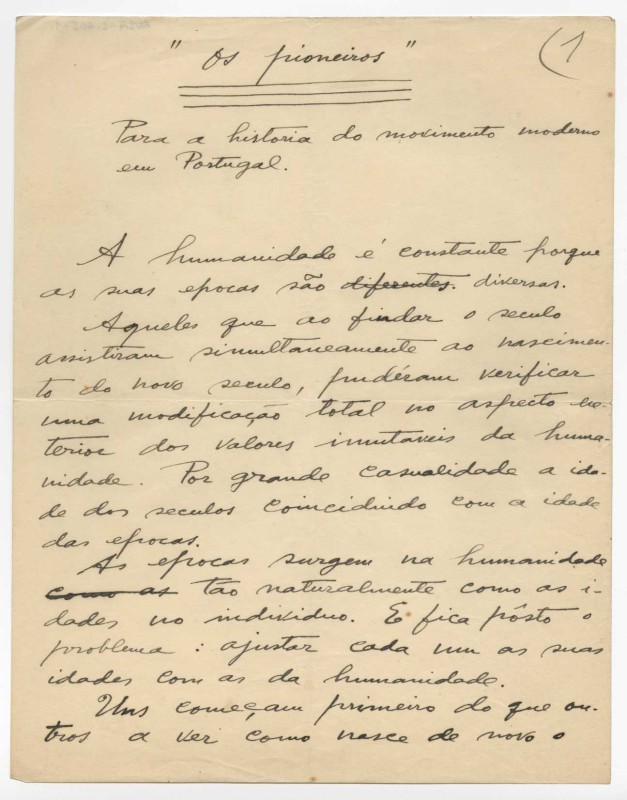 " Os pioneiros "
(1
Para a historia do movimento moderno
em Portugal.
A humanidade é constante porque
as suas epocas são diferentes. diversas.
Aqueles que ao findar o seculo
assistiram simultaneamente ao nascimen-
to do novo seculo, pudéram verificar
uma modificação total no aspecto ex-
terior dos valores imutaveis da huma-
nidade. Por grande casualidade a ida-
de dos seculos coincidindo com a idade
das epocas.
As epocas surgem na humanidade
como as tão naturalmente como as i-
dades no individuo. E fica pôsto o
problema : ajustar cada um as suas
idades com as da humanidade.
Uns começam primeiro do que ou-
tros a ver como nasce de novo o